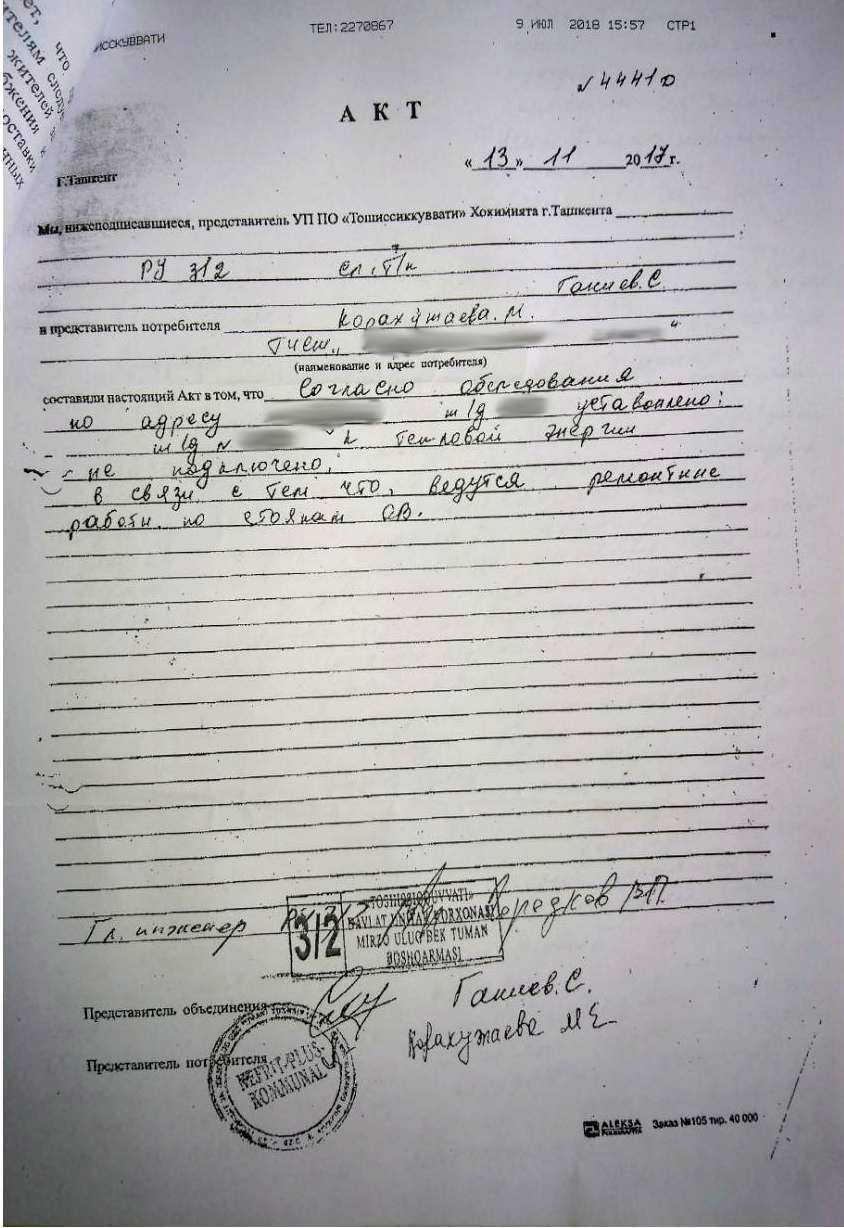 что
ителям следу
жителей
бжения к
оставки
нных
ИССКУВВАТИ ТЕЛ:2270867 9 ИЮЛ 2018 15:57 СТР1
№44410
АКТ
«13» 11 2017г.
Г.Ташкент
Мы, нижеподписавшиеся, представитель УП ПО «Тошиссиккуввати» Хокимията г.Ташкента
РУ 3/2 сл. Т/п
Ганиев.С.
и представитель потребителя Корахужаева.М.
Тчсж,
(наименование и адрес потребителя)
составили настоящий Акт в том, что Согласно обследования
по адресу ж/д установлено:
ж/д № к тепловой энергии
не подключено,
в связи с тем что, ведутся ремонтные
работы по стоякам ОВ.
Гл. инженер РУ 3/2
3/2
«TOSHISSIQQUVVATI»
DAVLAT UNITAR KORXONASI
MIRZO ULUG'BEK TUMAN
BOSHQARMASI
Представитель объединения Ганиев.С.
Корахужаева М Е
Представитель потребителя
NEFRIT-PLUS-
KOMMUNAL
ALEKSA Заказ №105 тир. 40 000